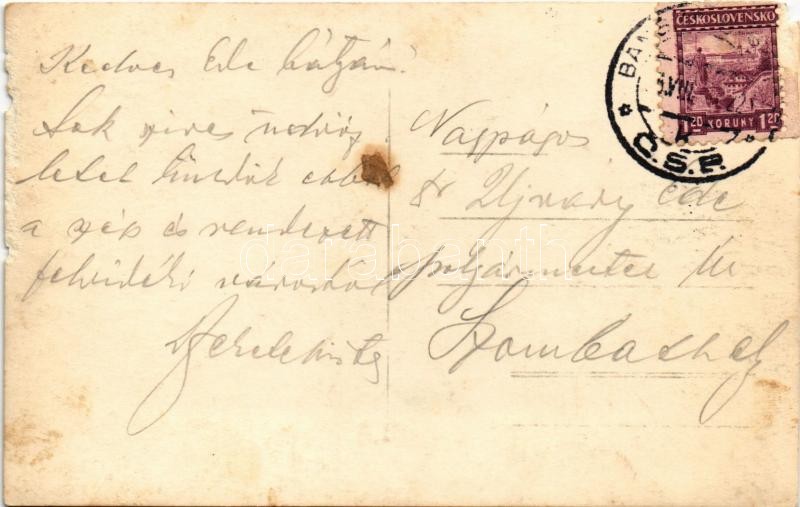 Kedves Ede bátyám!
Sok szives üdvöz-
letet küldök ebből
a szép és rendezett
felvidéki városból
Nagyságos
dr Ujváry Ede
polgármester úr
Szombathely
ČESKOSLOVENSKO
1.20 KORUNY 1.20
BAN
Č.S.R.
darabanth